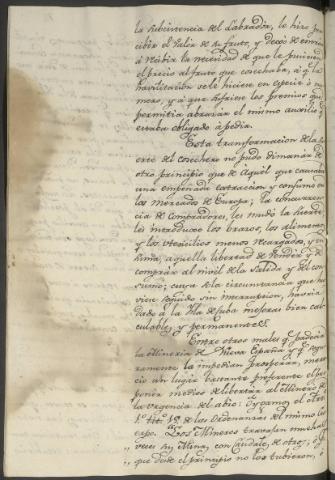 la subsistencia del Labrador, le hizo per
cibir el valor de su fruto, y dexó de
á recibir la necesidad de que le pusieran
el precio al fruto que cosechaba, á q.e la
havilitacion se le hiciese en especie ó nu
mero, y á que hiciese los premios que
permitia abrazar el mismo auxilio q.
estaba obligado á pedir.
Esta transformacion de la su
erte del cosechero no pudo dimanar de
otro principio que de aquel que causaba
una empeñada extraccion y consumo en
los mercados de Europa; la concurren
cia de Compradores, les mudó la suerte
les introduxo los brazos, los alimentos
y los utensilios menos recargados, y en
suma, aquella libertad de vender y de
comprar al nivel de la salida y del con
sumo; cuya circunstancia que hu
viese seguido sin interrupcion, havria
dado á la Isla de Cuba mejoras bien cal
culables y permanentes.
Entre otros males q.e padecia
la Mineria de Nueva España y q.e
ramente la impedian prosperar, mere
cio un lugar bastante preferente el pro
poner medios de libertar al Minero de
la urgencia del avio: Oygamos el
1.º tit.º 15 de las Ordenanzas del mismo Cu
erpo. "Los Mineros trabajan muchas
veces su Mina, con caudales de otro, ó p.r
que desde el principio no los tubieron,